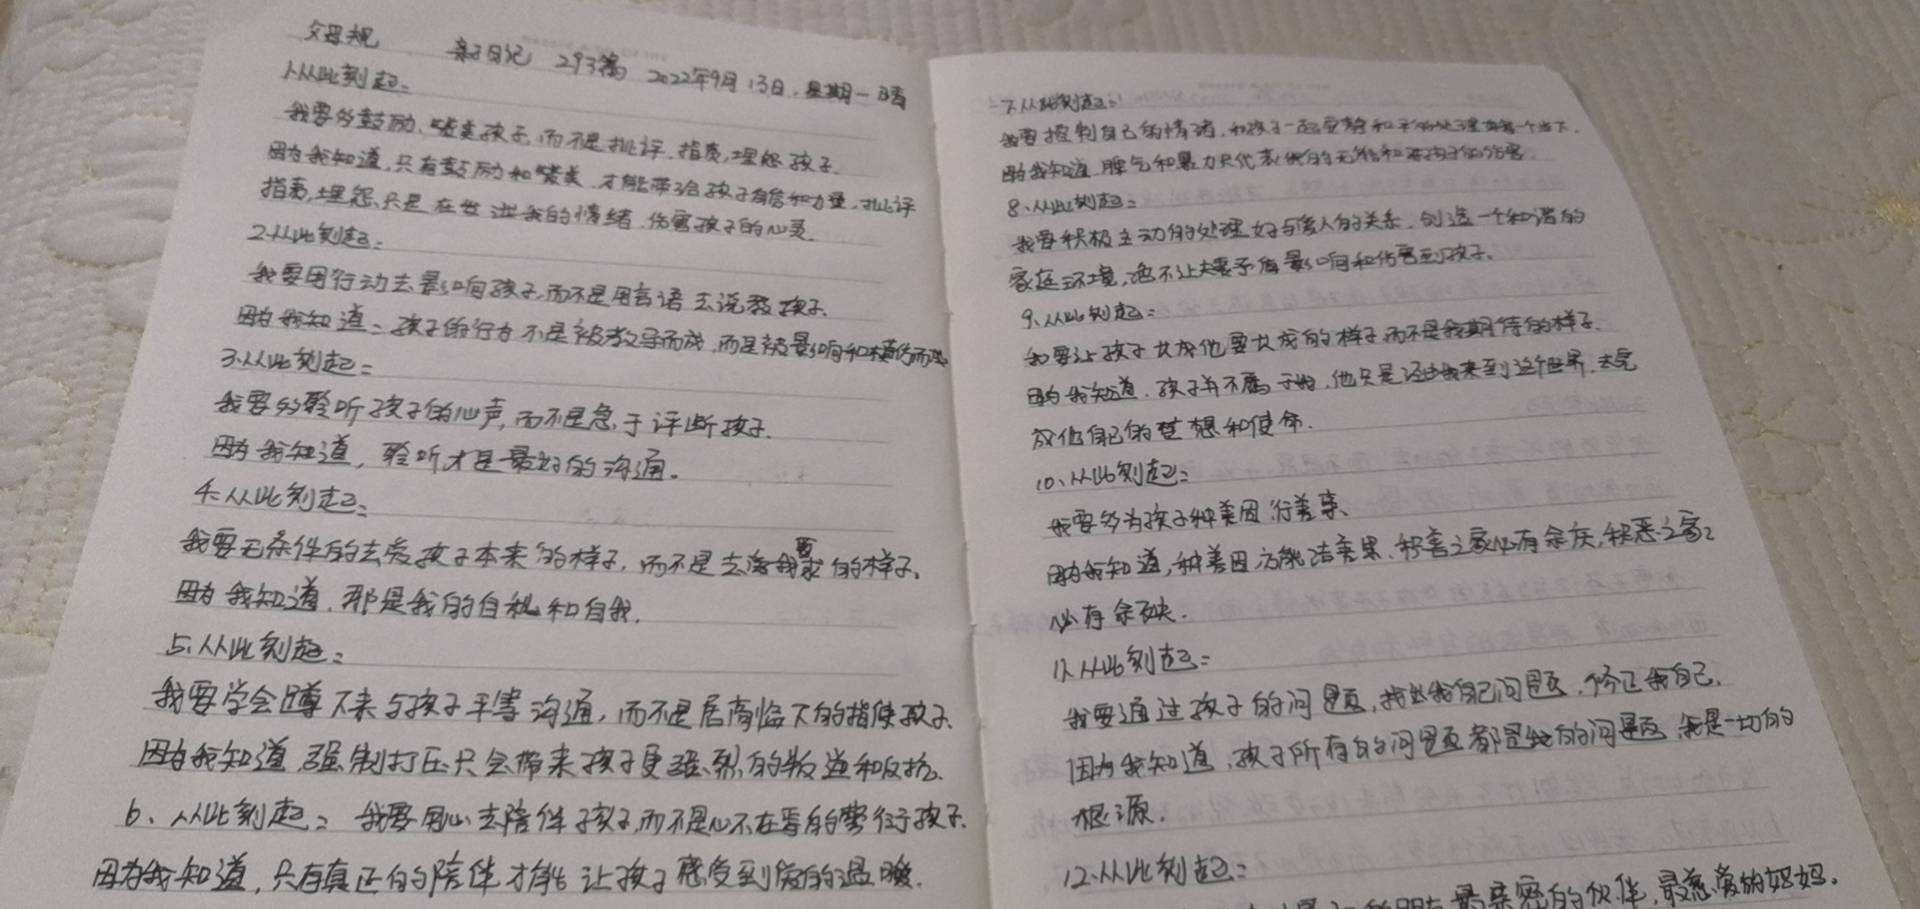 父母规 亲子日记 293篇 2022年9月13日.星期一 晴
1.从此刻起:
我要多鼓励,赞美孩子,而不是批评.指责,埋怨孩子.
因为我知道,只有鼓励和赞美,才能带给孩子自信和力量,批评
指责,埋怨只是在发泄我的情绪.伤害孩子的心灵.
2.从此刻起:
我要用行动去影响孩子,而不是用言语去说教孩子.
因为我知道:孩子的行为不是被教导而成,而是被影响和模仿而成
3.从此刻起:
我要多聆听孩子的心声,而不是急于评断孩子.
因为我知道,聆听才是最好的沟通。
4.从此刻起:
我要无条件的去爱孩子本来的样子,而不是去爱我要求的样子.
因为我知道,那是我的自私和自我.
5.从此刻起:
我要学会蹲下来与孩子平等沟通,而不是居高临下的指使孩子.
因为我知道 强制打压只会带来孩子更强烈的叛逆和反抗.
6、从此刻起:我要用心去陪伴孩子,而不是心不在焉的敷衍孩子.
因为我知道,只有真正的陪伴才能让孩子感受到爱的温暖.
7.从此刻起:
我要控制自己的情绪,和孩子一起安静和平的处理每一个当下.
因为我知道 脾气和暴力只代表我的无能和对孩子的伤害.
8、从此刻起:
我要积极主动的处理好与家人的关系,创造一个和谐的
家庭环境,绝不让夫妻矛盾影响和伤害到孩子.
9、从此刻起:
我要让孩子长成他要长成的样子,而不是我期待的样子.
因为我知道,孩子并不属于我,他只是经由我来到这个世界,去完
成他自己的梦想和使命.
10、从此刻起:
我要多为孩子种善因,行善事、
因为我知道,种善因方能结善果、积善之家必有余庆,积恶之家
必有余殃.
11、从此刻起:
我要通过孩子的问题,找出我自己问题,修正我自己.
因为我知道,孩子所有的问题都是我的问题 我是一切的
根源.
12.从此刻起:
最亲密的伙伴,最慈爱的妈妈.